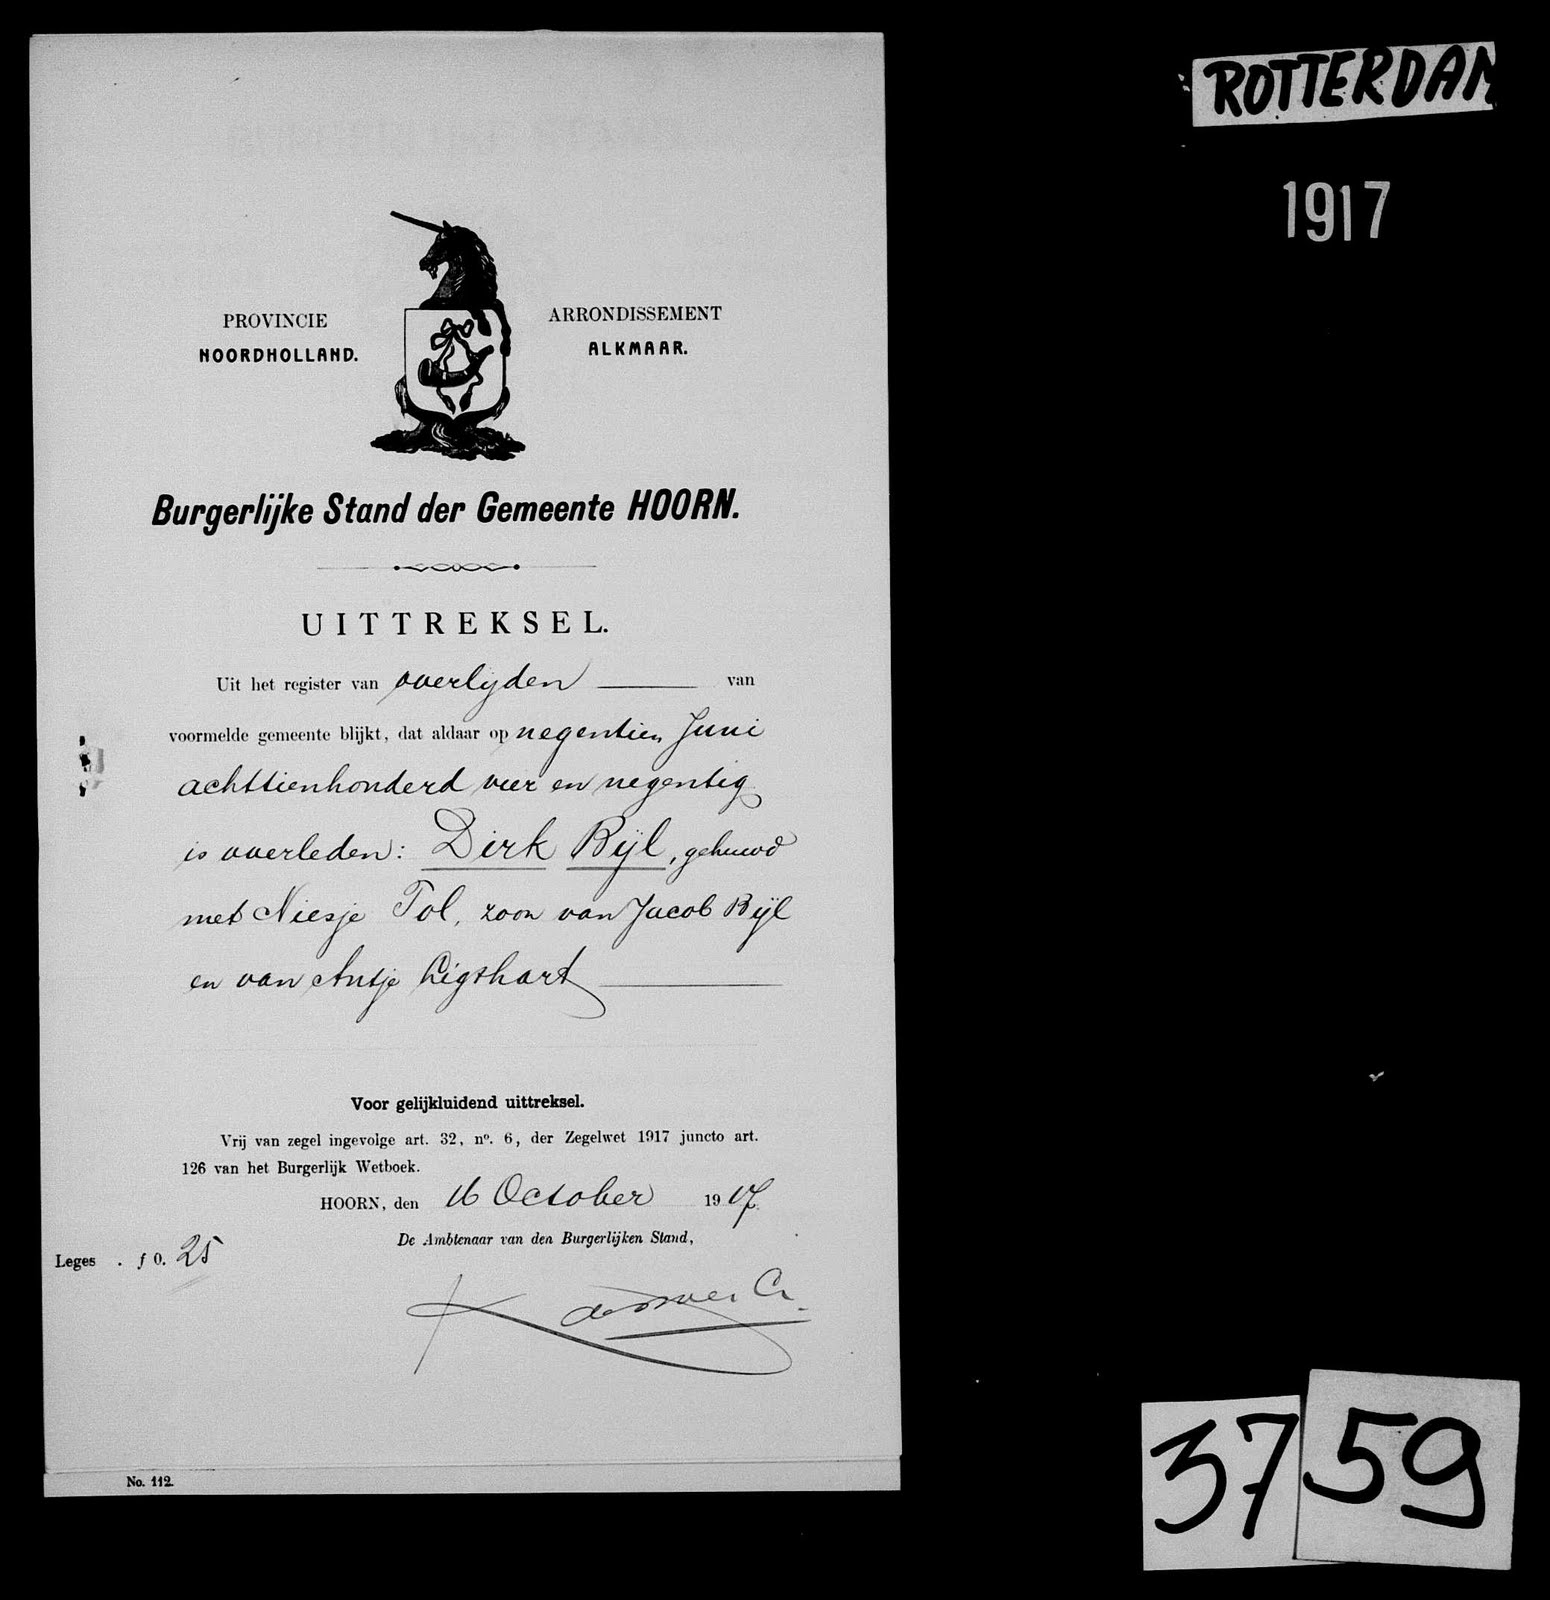 ROTTERDAM
1917
PROVINCIE
NOORDHOLLAND.
ARRONDISSEMENT
ALKMAAR.
Burgerlijke Stand der Gemeente HOORN.
UITTREKSEL.
Uit het register van overlijden van
voormelde gemeente blijkt, dat aldaar op negentien Juni
achttienhonderd vier en negentig
is overleden: Dirk Bijl, gehuwd
met Niesje Tol, zoon van Jacob Bijl
en van Antje Ligthart
Voor gelijkluidend uittreksel.
Vrij van zegel ingevolge art. 32, no. 6, der Zegelwet 1917 juncto art.
126 van het Burgerlijk Wetboek.
HOORN, den 16 October 1917.
De Ambtenaar van den Burgerlijken Stand,
Leges . f 0. 25
No. 112.
37 59